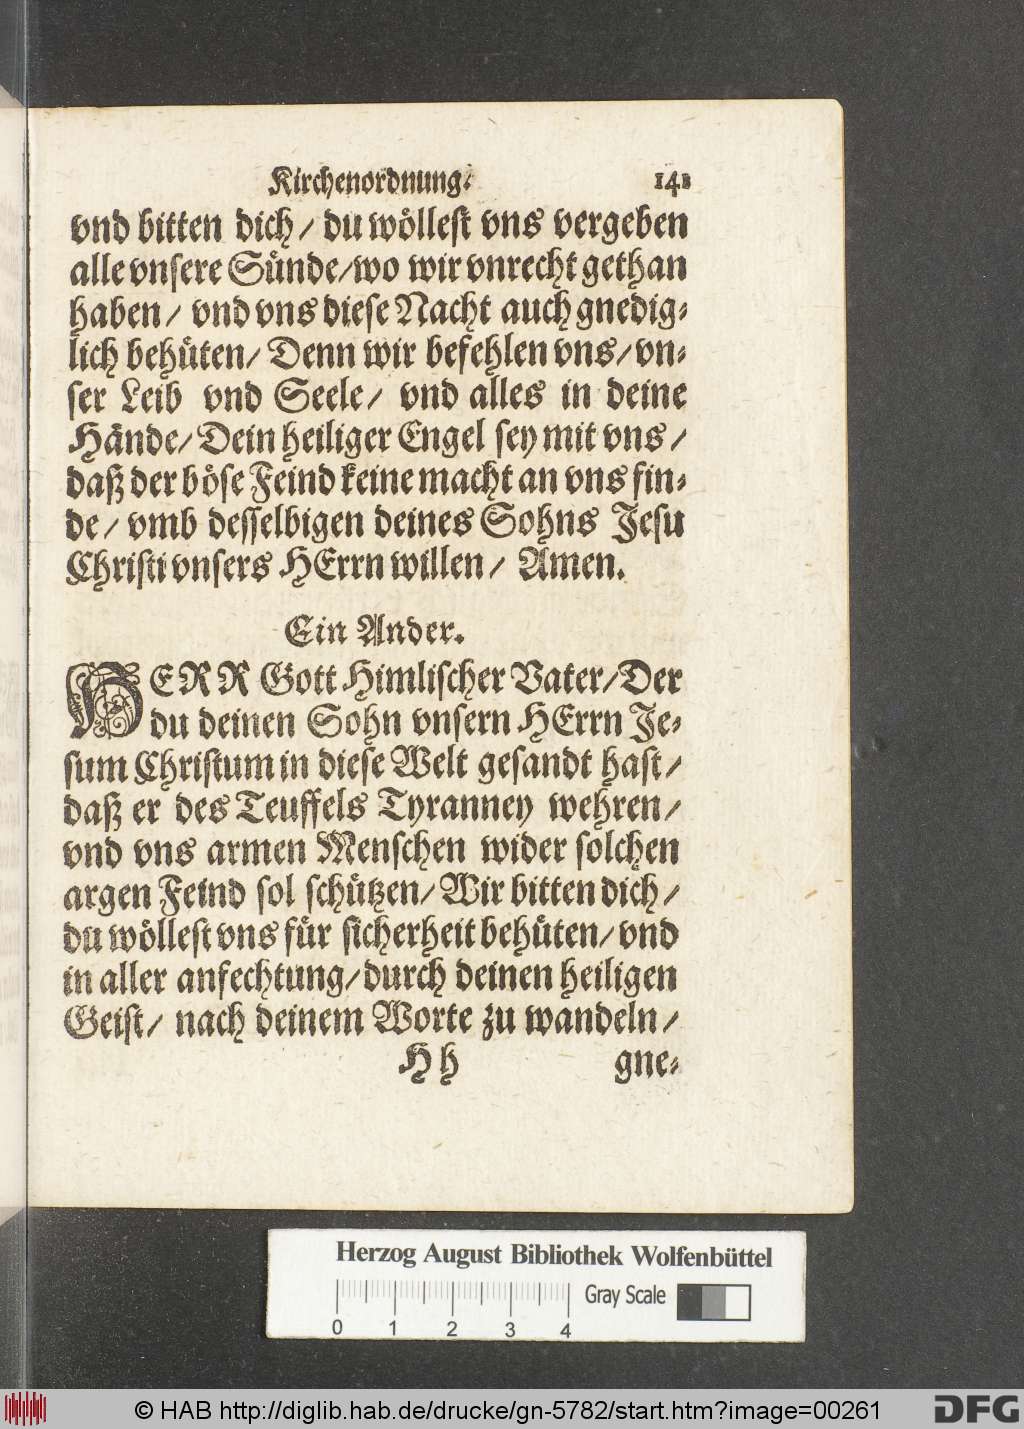 Kirchenordnung. 141
vnd bitten dich / du wöllest vns vergeben
alle vnsere Sünde / wo wir vnrecht gethan
haben / vnd vns diese Nacht auch gnedig-
lich behüten / Denn wir befehlen vns / vn-
ser Leib vnd Seele / vnd alles in deine
Hände / Dein heiliger Engel sey mit vns /
daß der böse Feind keine macht an vns fin-
de / vmb desselbigen deines Sohns Jesu
Christi vnsers HErrn willen / Amen.
Ein Ander.
HERR Gott Himlischer Vater / Der
du deinen Sohn vnsern HErrn Je-
sum Christum in diese Welt gesandt hast /
daß er des Teuffels Tyranney wehren /
vnd vns armen Menschen wider solchen
argen Feind sol schützen / Wir bitten dich /
du wöllest vns für sicherheit behüten / vnd
in aller anfechtung / durch deinen heiligen
Geist / nach deinem Worte zu wandeln /
Hh gne-
Herzog August Bibliothek Wolfenbüttel
Gray Scale
0 1 2 3 4
© HAB http://diglib.hab.de/drucke/gn-5782/start.htm?image=00261
DFG